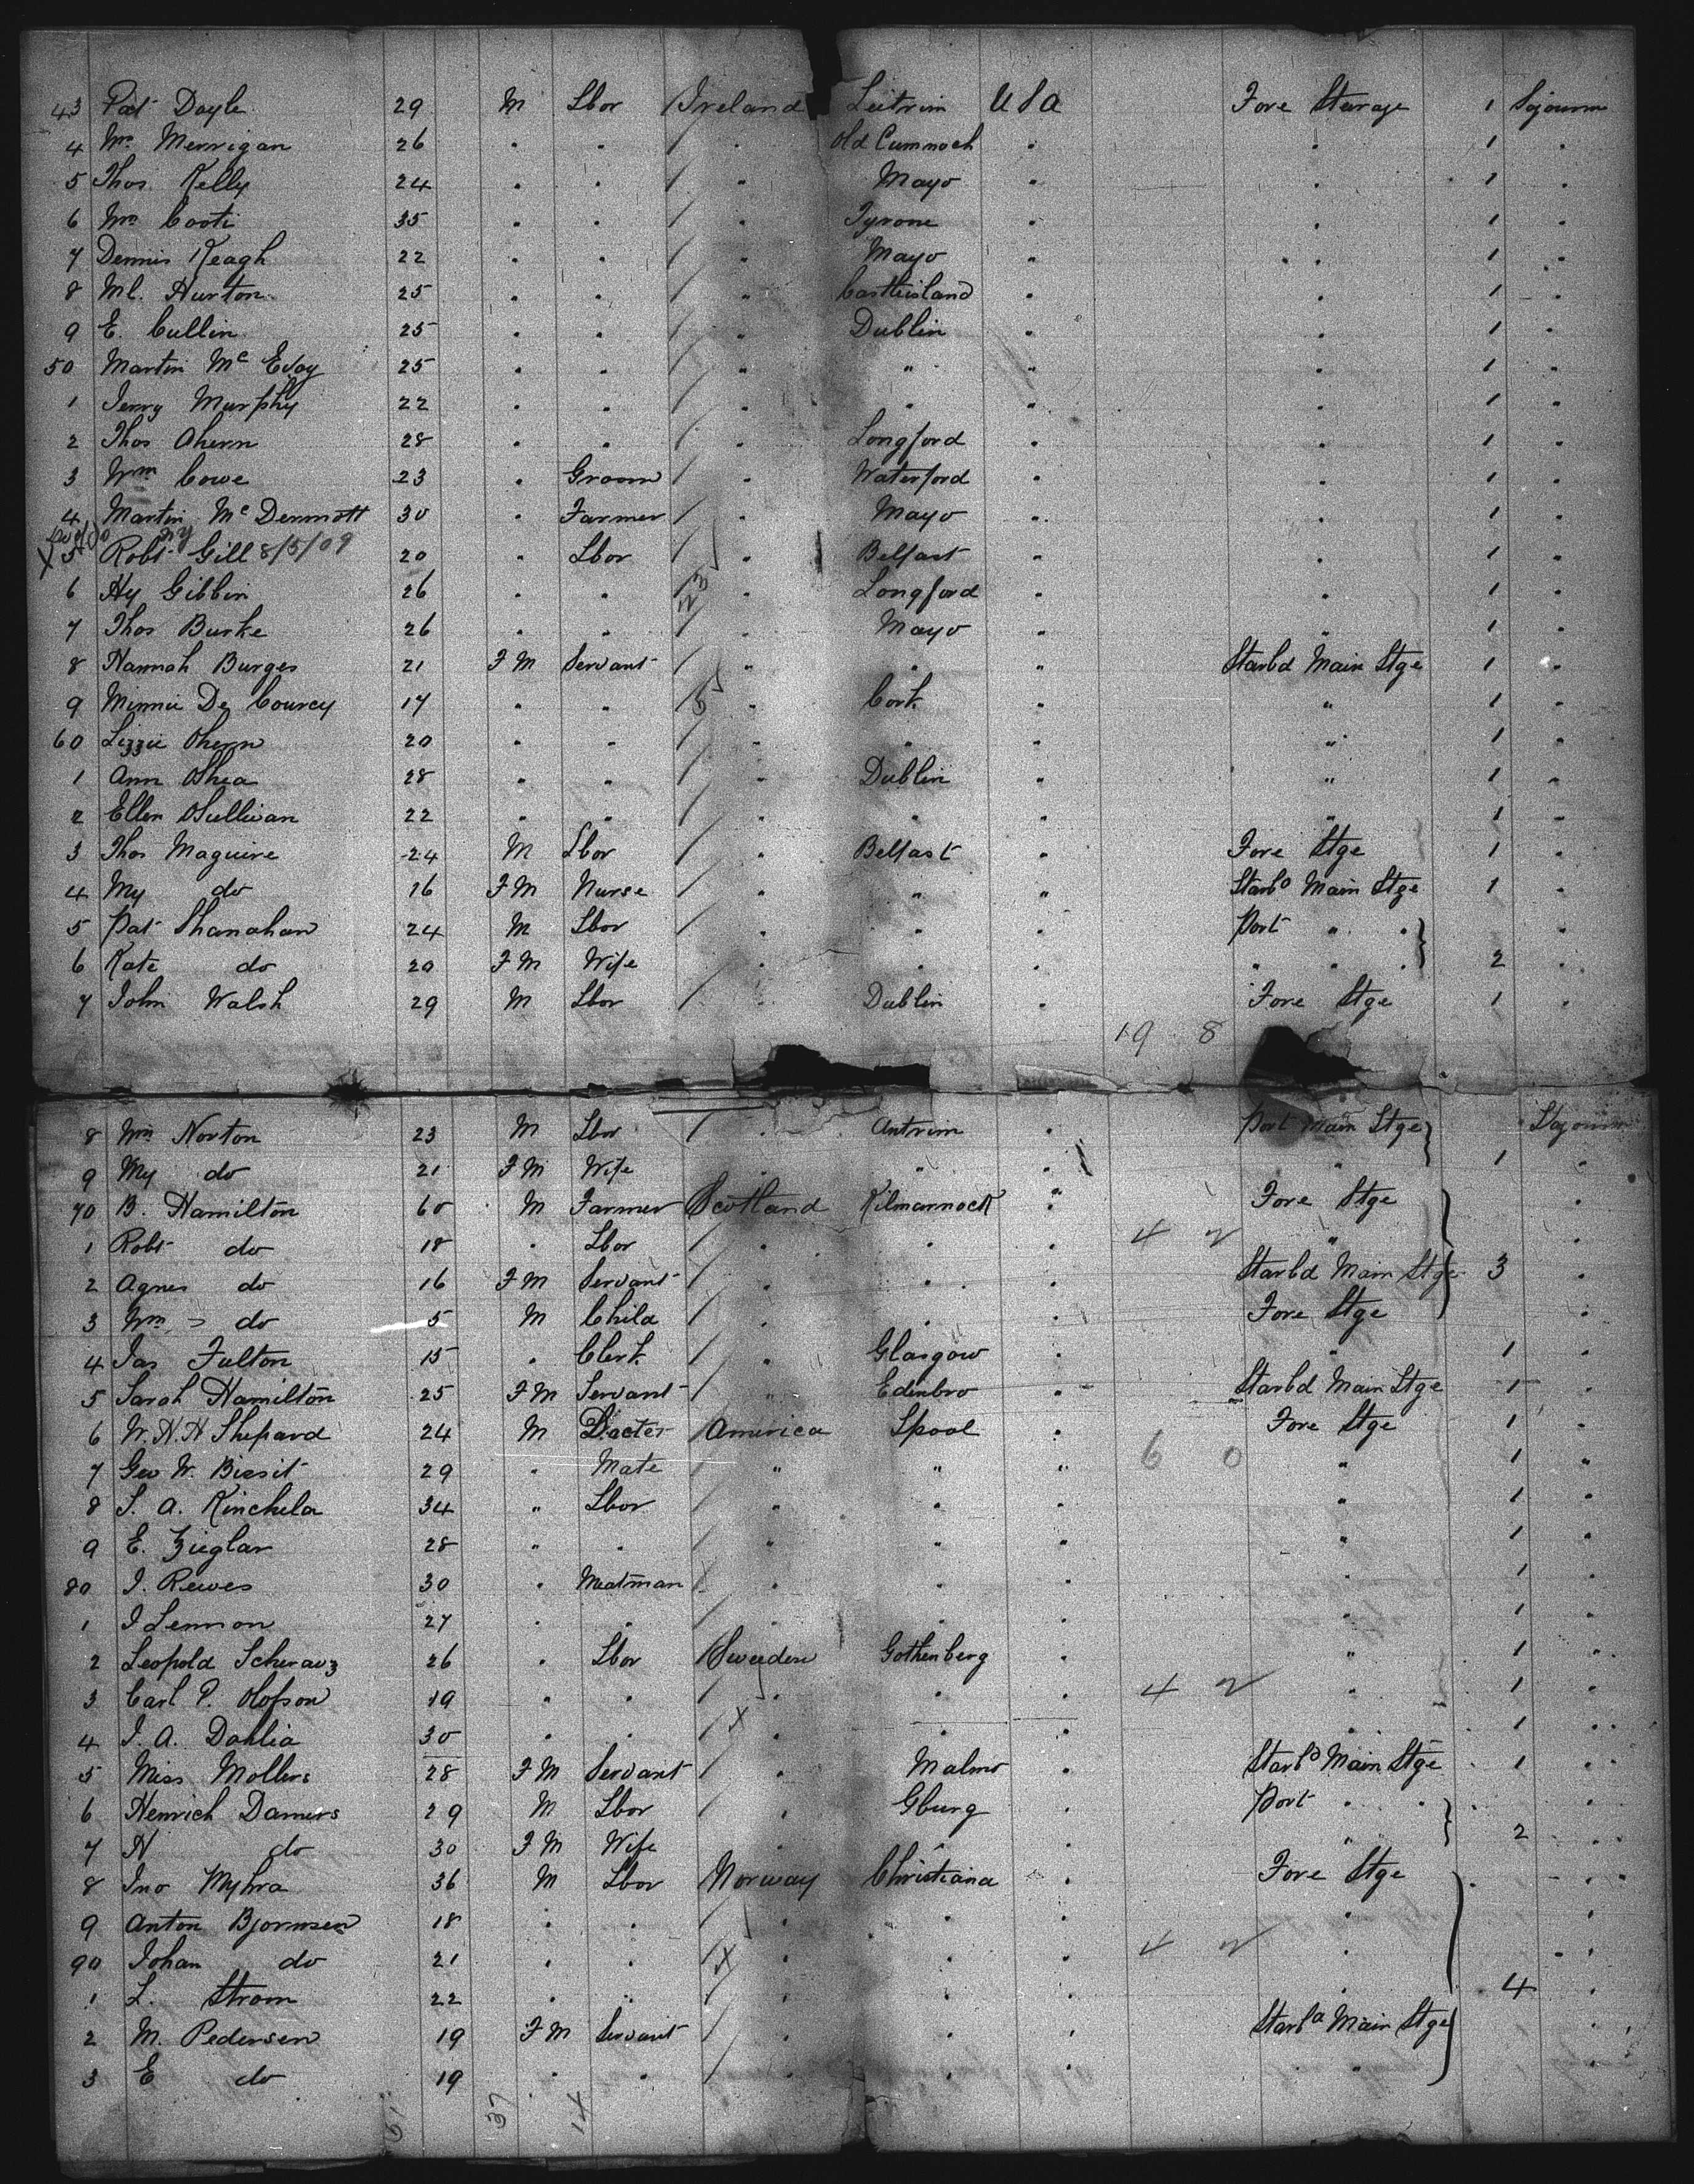 43 Pat Doyle 29 M Lbor Ireland Leitrim U S A Fore Sterage 1 Sojourn
4 Wm Merrigan 26 " " " Old Cumnoch " " 1 "
5 Thos Kelly 24 " " " Mayo " " 1 "
6 Wm Cooti 35 " " " Tyrone " " 1 "
7 Dennis Keagh 22 " " " Mayo " " 1 "
8 Ml. Hurton 25 " " " Castleisland " " 1 "
9 E. Cullin 25 " " " Dublin " " 1 "
50 Martin Mc Evoy 25 " " " " " " 1 "
1 Jerry Murphy 22 " " " " " " 1 "
2 Thos Ahern 28 " " " Longford " " 1 "
3 Wm Cowe 23 " Groom " Waterford " " 1 "
4 Martin Mc Dermott 30 " Farmer " Mayo " " 1 "
X 5 Robt Gill 8/5/09 20 " Lbor " Belfast " " 1 "
6 Hy Gibbin 26 " " 23 " Longford " " 1 "
7 Thos Burke 26 " " " Mayo " " 1 "
8 Hannah Burges 21 F M Servant " " " Starbd Main Stge 1 "
9 Minnie De Courcy 17 " " 5 " Cork " " 1 "
60 Lizzie Ohern 20 " " " " " " 1 "
1 Ann OShea 28 " " " Dublin " " 1 "
2 Ellen OSullivan 22 " " " " " " 1 "
3 Thos Maguire 24 M Lbor " Belfast " Fore Stge 1 "
4 My do 16 F M Nurse " " " Starbd Main Stge 1 "
5 Pat Shanahan 24 M Lbor " " " Port " " "
6 Kate do 20 F M Wife " " " " " " 2 "
7 John Walsh 29 M Lbor " Dublin " Fore Stge 1 "
19 8
8 Wm Norton 23 M Lbor " Antrim " Port Main Stge Sojourn
9 My do 21 F M Wife " " " " 1 "
70 B. Hamilton 60 M Farmer Scotland Kilmarnock " Fore Stge "
1 Robt do 18 " Lbor " " " 4 2 " "
2 Agnes do 16 F M Servant " " " Starbd Main Stge 3 "
3 Wm do 5 M Child " " " Fore Stge "
4 Jas Fulton 15 " Clerk " Glasgow " " 1 "
5 Sarah Hamilton 25 F M Servant " Edinbro " Starbd Main Stge 1 "
6 W. H. H Shepard 24 M Docter America Lpool " Fore Stge 1 "
7 Geo W. Bissit 29 " Mate " " " 6 0 " 1 "
8 S. A. Kinchela 34 " Lbor " " " " 1 "
9 E. Zieglar 28 " " " " " " 1 "
80 J. Reeves 30 " Meatman " " " " 1 "
1 J Lennon 27 " " " " " " 1 "
2 Leopold Scherauz 26 " Lbor Sweeden Gothenberg " " 1 "
3 Carl P. Olofson 19 " " " " " 4 2 " 1 "
4 J. A. Dahlia 30 " " X " " " " 1 "
5 Miss Mollers 28 F M Servant " Malmo " Starbd Main Stge 1 "
6 Henrich Damers 29 M Lbor " Gburg " Port " " "
7 H do 30 F M Wife " " " " 2 "
8 Jno Myhra 36 M Lbor Norway Christiana " Fore Stge "
9 Anton Bjornsen 18 " " " " " " "
90 Johan do 21 " " X " " " 4 2 " "
1 L. Strom 22 " " " " " " 4 "
2 M. Pedersen 19 F M Servant " " " Starbd Main Stge "
3 E do 19 " " " " " " "
51 37 14